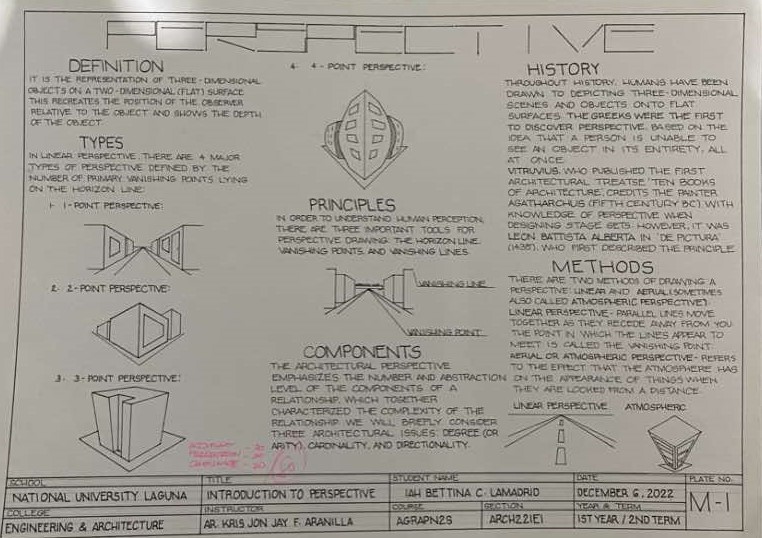 PERSPECTIVE
DEFINITION
IT IS THE REPRESENTATION OF THREE-DIMENSIONAL
OBJECTS ON A TWO-DIMENSIONAL (FLAT) SURFACE
THIS RECREATES THE POSITION OF THE OBSERVER
RELATIVE TO THE OBJECT AND SHOWS THE DEPTH
OF THE OBJECT
TYPES
IN LINEAR PERSPECTIVE, THERE ARE 4 MAJOR
TYPES OF PERSPECTIVE DEFINED BY THE
NUMBER OF PRIMARY VANISHING POINTS LYING
ON THE HORIZON LINE:
1· 1-POINT PERSPECTIVE:
2· 2-POINT PERSPECTIVE:
3· 3-POINT PERSPECTIVE:
4· 4-POINT PERSPECTIVE:
PRINCIPLES
IN ORDER TO UNDERSTAND HUMAN PERCEPTION,
THERE ARE THREE IMPORTANT TOOLS FOR
PERSPECTIVE DRAWING: THE HORIZON LINE,
VANISHING POINTS, AND VANISHING LINES
VANISHING LINE
VANISHING POINT
COMPONENTS
THE ARCHITECTURAL PERSPECTIVE
EMPHASIZES THE NUMBER AND ABSTRACTION
LEVEL OF THE COMPONENTS OF A
RELATIONSHIP, WHICH TOGETHER
CHARACTERIZED THE COMPLEXITY OF THE
RELATIONSHIP WE WILL BRIEFLY CONSIDER
THREE ARCHITECTURAL ISSUES: DEGREE (OR
ARITY), CARDINALITY, AND DIRECTIONALITY.
- 20
- 20
- 20
60
HISTORY
THROUGHOUT HISTORY, HUMANS HAVE BEEN
DRAWN TO DEPICTING THREE-DIMENSIONAL
SCENES AND OBJECTS ONTO FLAT
SURFACES. THE GREEKS WERE THE FIRST
TO DISCOVER PERSPECTIVE, BASED ON THE
IDEA THAT A PERSON IS UNABLE TO
SEE AN OBJECT IN ITS ENTIRETY, ALL
AT ONCE.
VITRUVIUS, WHO PUBLISHED THE FIRST
ARCHITECTURAL TREATSE 'TEN BOOKS
OF ARCHITECTURE', CREDITS THE PAINTER
AGATHARCHUS (FIFTH CENTURY BC) WITH
KNOWLEDGE OF PERSPECTIVE WHEN
DESIGNING STAGE SETS. HOWEVER, IT WAS
LEON BATTISTA ALBERTA IN 'DE PICTURA'
(1435), WHO FIRST DESCRIBED THE PRINCIPLE
METHODS
THERE ARE TWO METHODS OF DRAWING A
PERSPECTIVE: LINEAR AND AERIAL (SOMETIMES
ALSO CALLED ATMOSPHERIC PERSPECTIVE).
LINEAR PERSPECTIVE - PARALLEL LINES MOVE
TOGETHER AS THEY RECEDE AWAY FROM YOU
THE POINT IN WHICH THE LINES APPEAR TO
MEET IS CALLED THE VANISHING POINT.
AERIAL OR ATMOSPHERIC PERSPECTIVE - REFERS
TO THE EFFECT THAT THE ATMOSPHERE HAS
ON THE APPEARANCE OF THINGS WHEN
THEY ARE LOOKED FROM A DISTANCE.
LINEAR PERSPECTIVE
ATMOSPHERIC
SCHOOL
NATIONAL UNIVERSITY LAGUNA
COLLEGE
ENGINEERING & ARCHITECTURE
TITLE
INTRODUCTION TO PERSPECTIVE
INSTRUCTOR
AR. KRIS JON JAY F. ARANILLA
STUDENT NAME
IAH BETTINA C. LAMADRID
COURSE
AGRAPN2S
SECTION
ARCH221E1
DATE
DECEMBER 6, 2022
YEAR & TERM
1ST YEAR / 2ND TERM
PLATE NO.
M-1